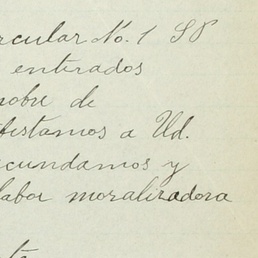 rcular No. 1 SP
enterados
sobre de
ifestamos a Ud.
ecundamos y
labor moralizadora
te